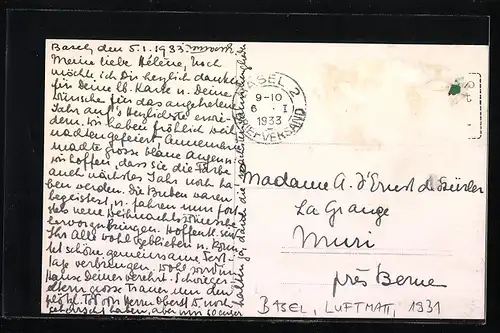 Basel, den 5.1.1933
Meine liebe Hélène, Noch
möchte ich Dir herzlich danken
für Deine lb. Karte u. Deine
Wünsche für das angetretene
Jahr auf's Herzlichste erwi-
dern. Wir haben fröhlich Weih
nachten gefeiert, Annemarie
machte grosse blaue Augen.
wir hoffen, dass sie die Farbe
auch nächstes Jahr noch ha
ben werden. Die Buben waren
begeistert u. fahren nun fort
stets neue Weihnachtswünsche
hervorzubringen. Hoffentl. seid
Ihr Alle wohl geblieben u. konn
tet schöne gemeinsame Fest-
tage verbringen. Wohl
hause Deiner verehrt. Schwieger
eltern grosse Trauer um den
Tod von Herrn Oberst D. noch
haben, aber nur
BASEL 2
9-10
6. I
1933
BRIEFVERSAND
Madame A. d'Ernst de Stürler
La Grange
Muri
près Berne
BASEL, LUFTMATT, 1931